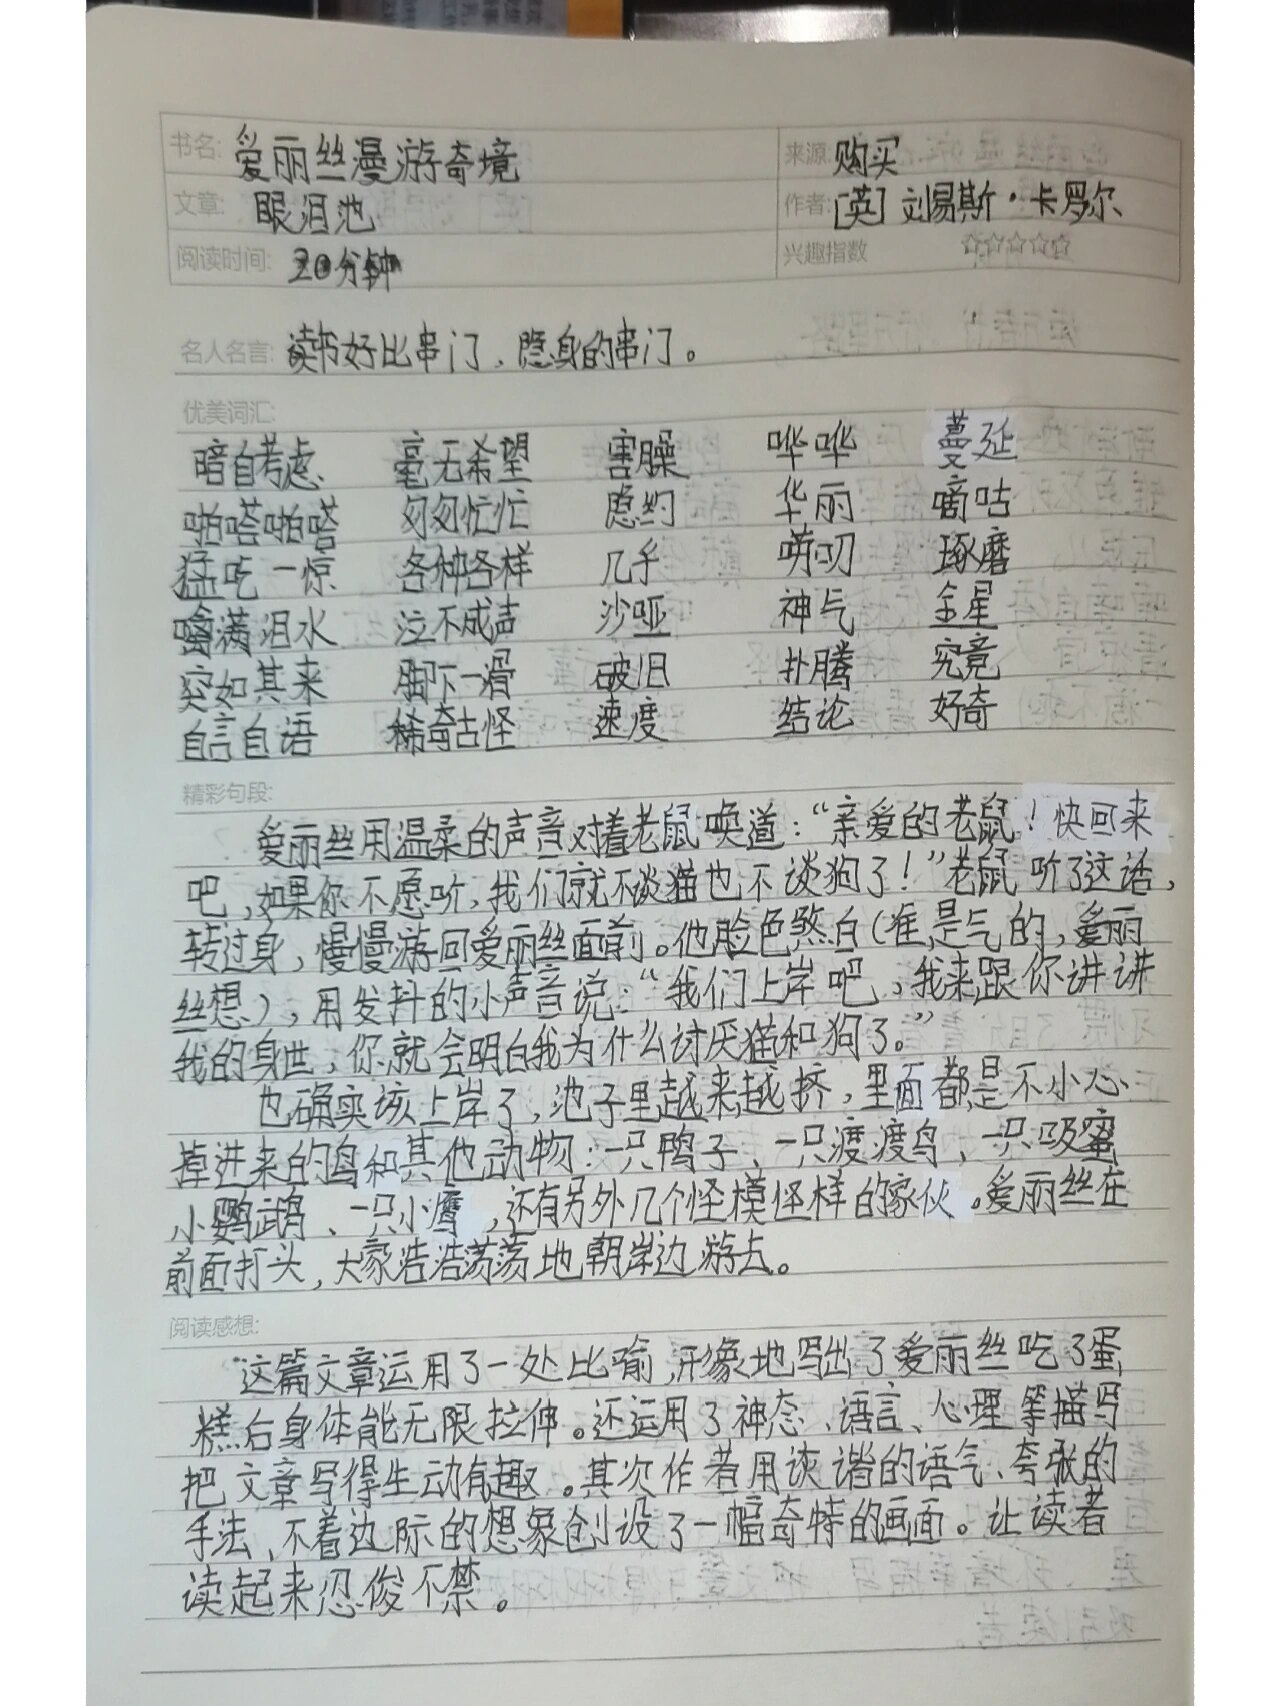 书名: 爱丽丝漫游奇境 来源: 购买
文章: 眼泪池 作者: [英]刘易斯·卡罗尔
阅读时间: 20分钟 兴趣指数 ☆☆☆☆☆
名人名言: 读书好比串门、隐身的串门。
优美词汇:
暗自考虑 毫无希望 害臊 哗哗 蔓延
啪嗒啪嗒 匆匆忙忙 隐约 华丽 嘀咕
猛吃一惊 各种各样 几乎 唠叨 琢磨
噙满泪水 泣不成声 沙哑 神气 全星
突如其来 脚下一滑 破旧 扑腾 究竟
自言自语 稀奇古怪 速度 结论 好奇
精彩句段:
爱丽丝用温柔的声音对着老鼠唤道：“亲爱的老鼠！快回来
吧，如果你不愿听，我们就不谈猫也不谈狗了！”老鼠听了这话，
转过身，慢慢游回爱丽丝面前。他脸色煞白（准是气的，爱丽
丝想），用发抖的小声音说：“我们上岸吧，我来跟你讲讲
我的身世，你就会明白我为什么讨厌猫和狗了。”
也确实该上岸了，池子里越来越挤，里面都是不小心
掉进来的鸟和其他动物：一只鸭子、一只渡渡鸟、一只吸蜜
小鹦鹉、一只小鹰，还有另外几个怪模怪样的家伙。爱丽丝在
前面打头，大家浩浩荡荡地朝岸边游去。
阅读感想:
这篇文章运用了一处比喻，形象地写出了爱丽丝吃了蛋
糕后身体能无限拉伸。还运用了神态、语言、心理等描写
把文章写得生动有趣。其次作者用诙谐的语气、夸张的
手法、不着边际的想象创设了一幅奇特的画面。让读者
读起来忍俊不禁。